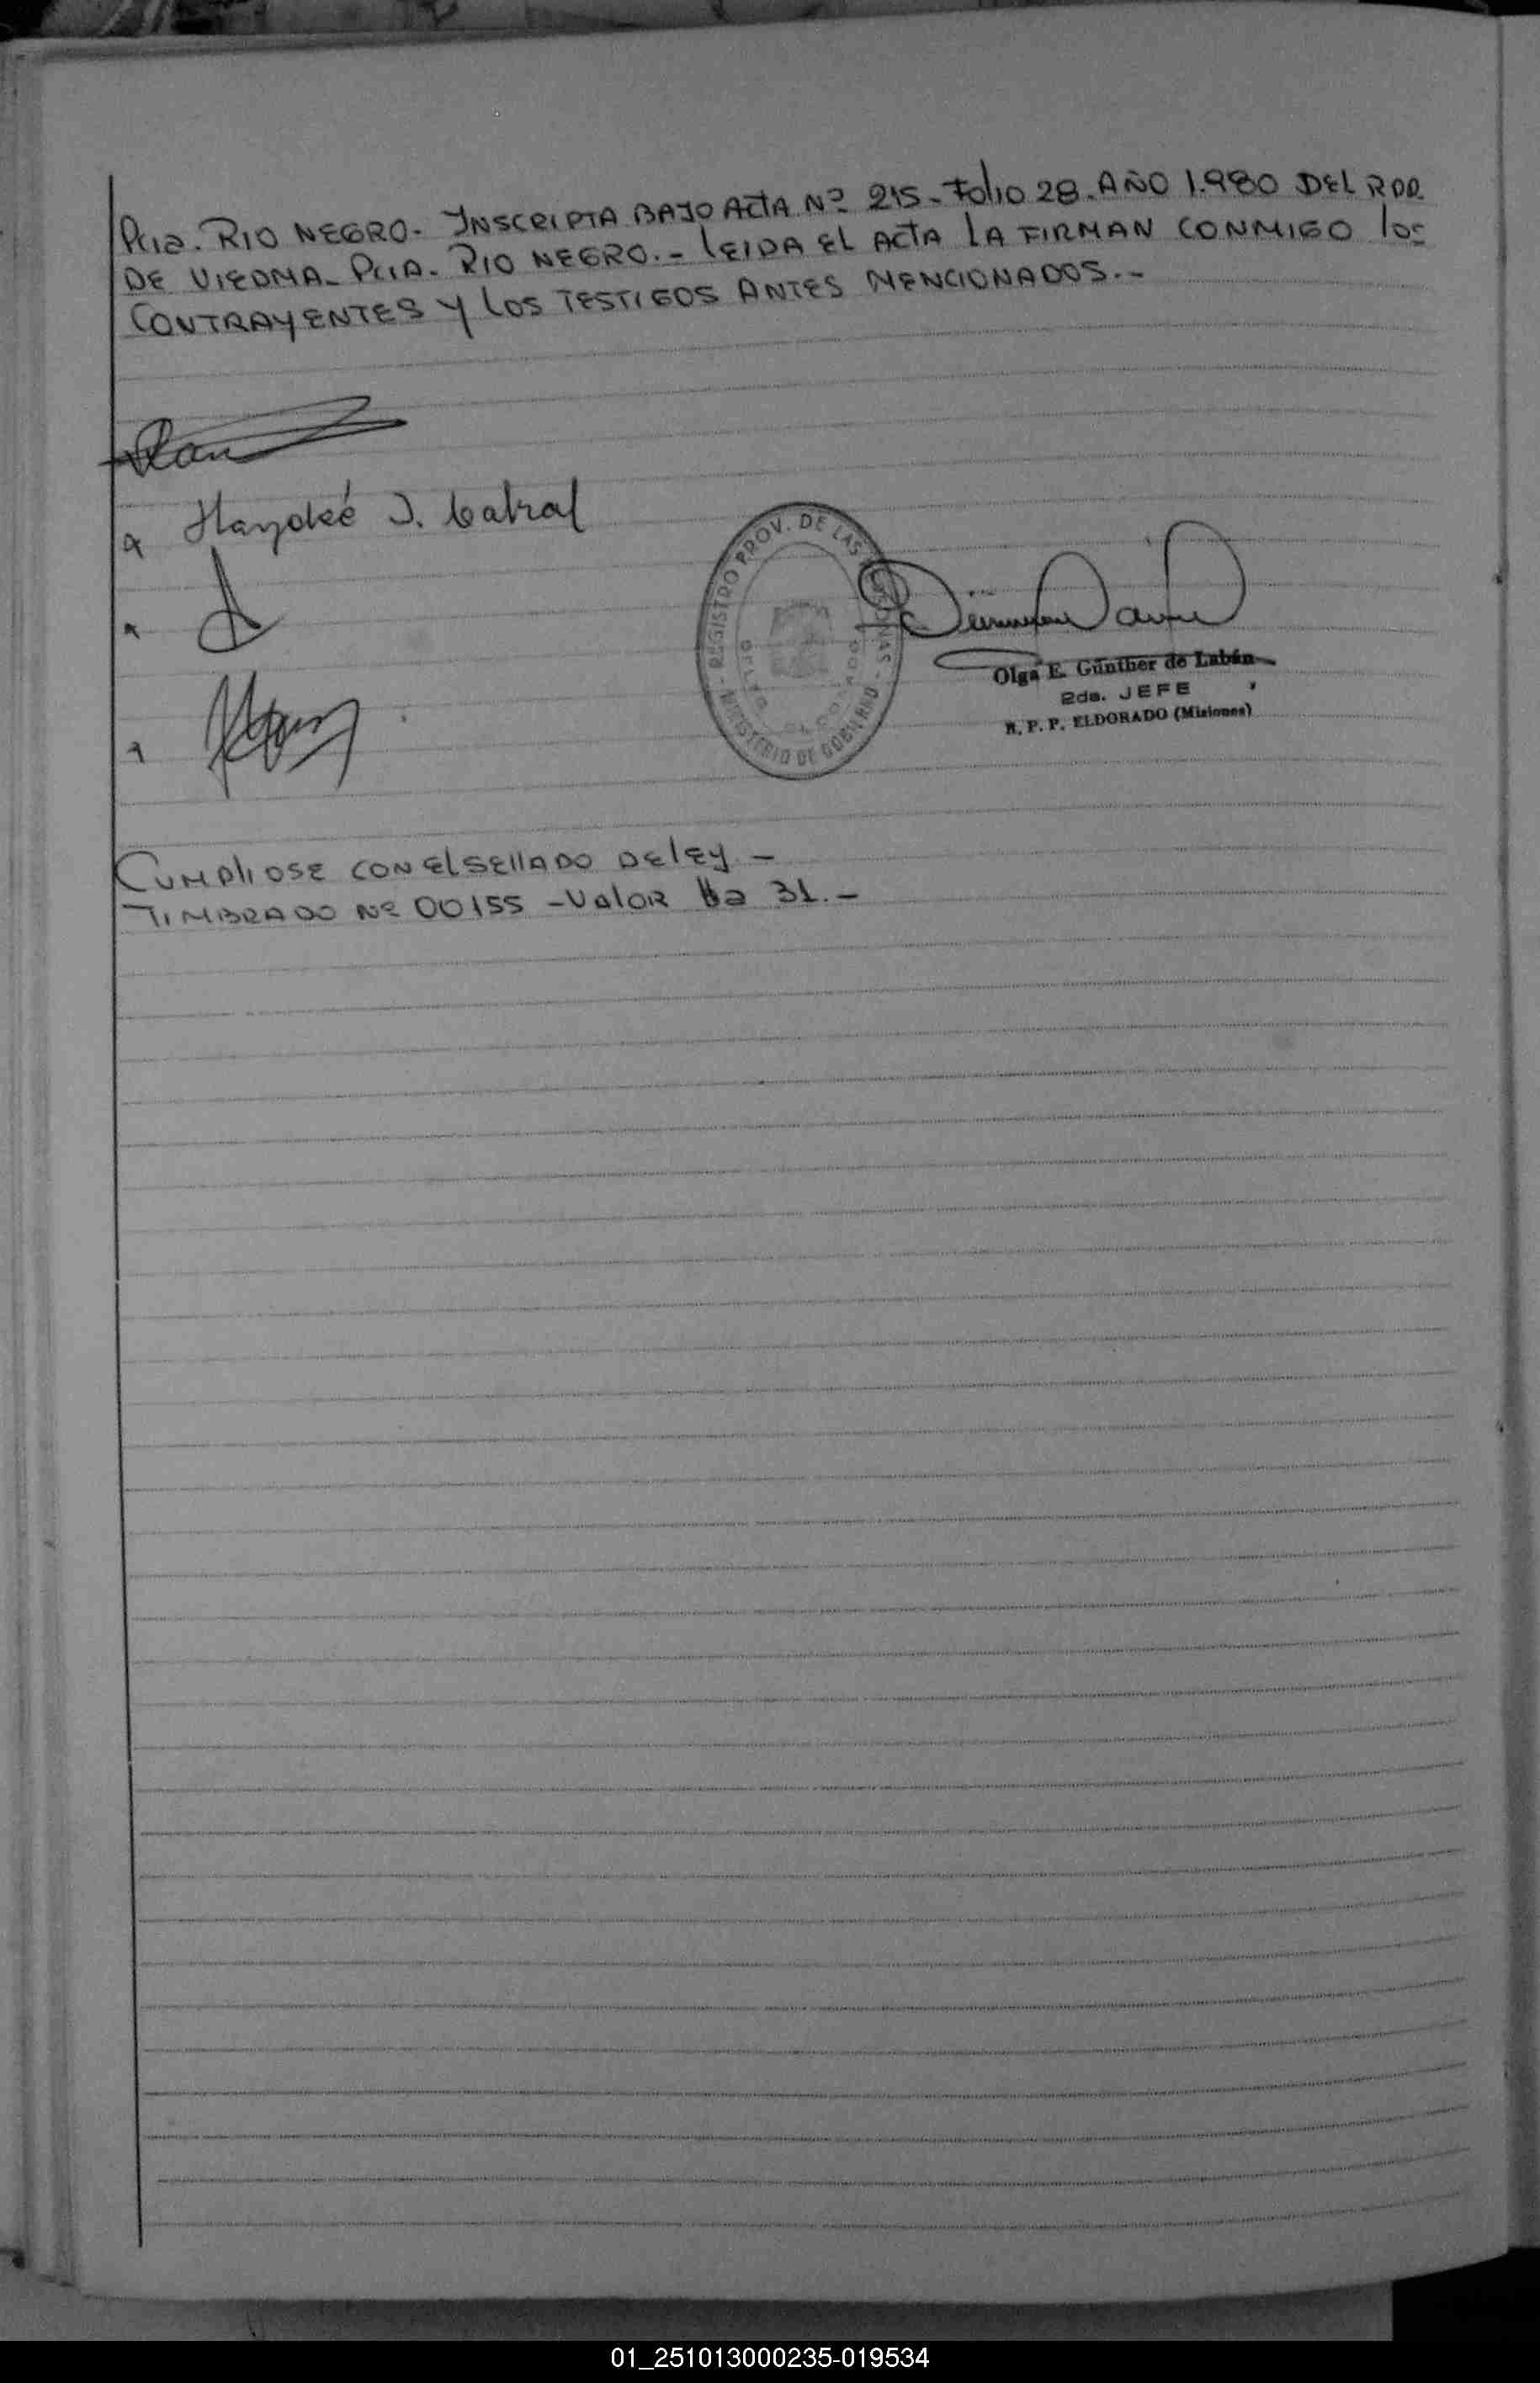 Pcia. RIO NEGRO. INSCRIPTA BAJO ACTA Nº 215 - Folio 28. AÑO 1.980 DEL RPP.
DE VIEDMA - PCIA. RIO NEGRO. - LEIDA EL ACTA LA FIRMAN CONMIGO los
CONTRAYENTES Y LOS TESTIGOS ANTES MENCIONADOS. -
Haydeé J. Cabral
REGISTRO PROV. DE LAS PERSONAS - MINISTERIO DE GOBIERNO -
Olga E. Günther de Labán
2da. JEFE
R. P. P. ELDORADO (Misiones)
CUMPLIOSE CON EL SELLADO DE LEY -
TIMBRADO Nº 00155 - VALOR 31. -
01_251013000235-019534